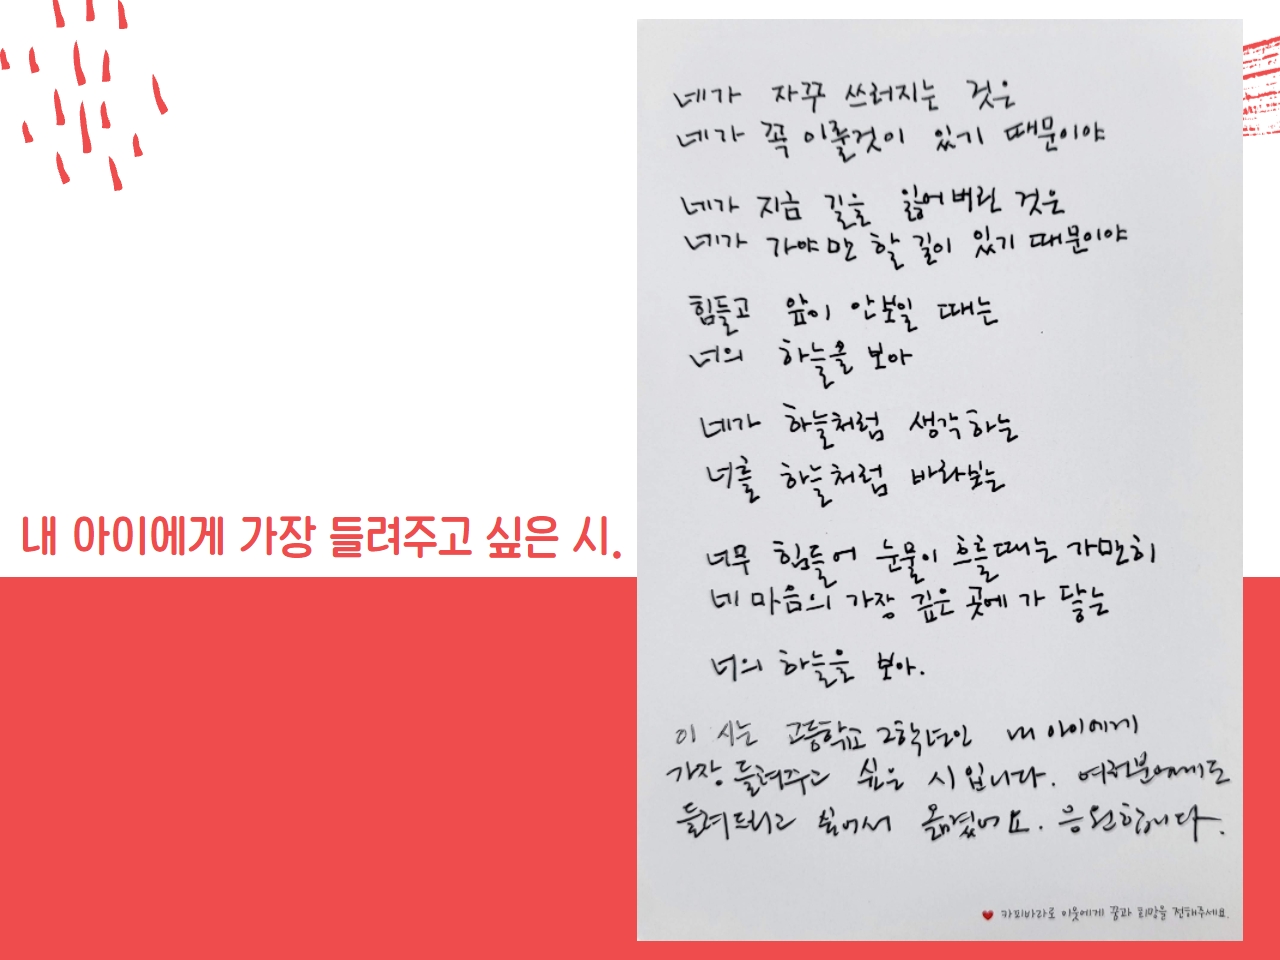 내 아이에게 가장 들려주고 싶은 시.
네가 자꾸 쓰러지는 것은
네가 꼭 이룰것이 있기 때문이야
네가 지금 길을 잃어버린 것은
네가 가야만 할 길이 있기 때문이야
힘들고 앞이 안보일 때는
너의 하늘을 보아
네가 하늘처럼 생각하는
너를 하늘처럼 바라보는
너무 힘들어 눈물이 흐를때는 가만히
네 마음의 가장 깊은 곳에 가 닿는
너의 하늘을 보아.
이 시는 고등학교 2학년인 내 아이에게
가장 들려주고 싶은 시입니다. 여러분에게도
들려드리고 싶어서 옮겼어요. 응원합니다.
♥ 카피바라로 이웃에게 꿈과 희망을 전해주세요.